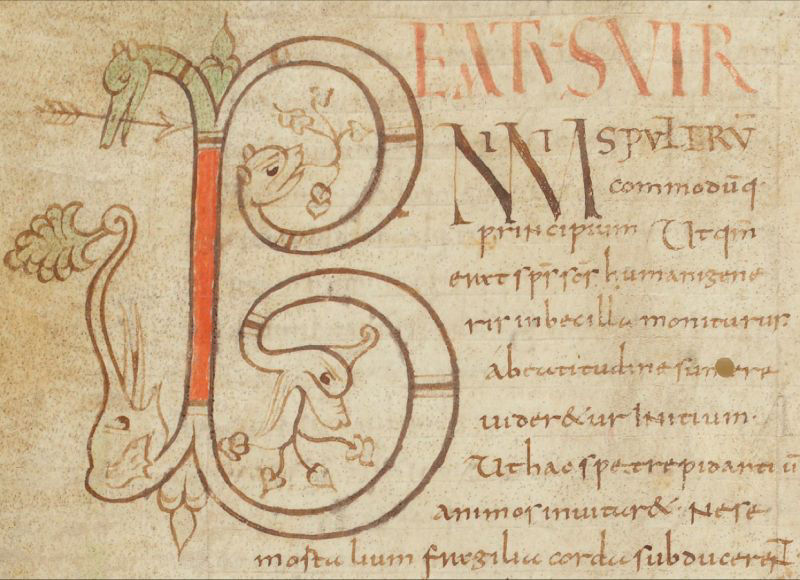 BEATUS UIR
NIMIS PULCRŪ
commodūq·
principium Utqm̄
erat sp̄s sc̄s humanigene
ris inbecilla moniturus
abeatitudine sumere
uider&ur Initium·
Ut hac spe trepidantiū
animos inuitar& Ne se
mortalium fragilia corda subducerent